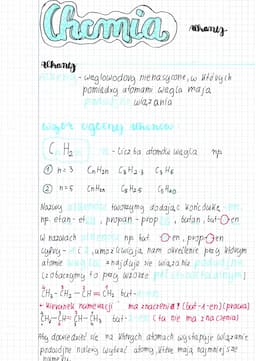 Chemia
Alkeny
Alkeny
Alkeny - węglowodory nienasycone, w których
pomiędzy atomami węgla mają
podwójne wiązania
wzór ogólny alkenów:
C H₂ - liczba atomów węgla np.
① n = 3 CnH2n C₃H2·3 C₃H₆
② n = 5 CnH2n C₅H2·5 C₅H₁₀
Nazwy tworzymy dodając końcówkę -en,
np. etan - eten, propan - propen, butan, buten
W nazwach np. but en, prop en,
cyfry - i, umożliwiają nam określenie przy którym
atomie węgla znajduje się wiązanie podwójne
(zobaczymy to przy wzorze półstrukturalnym)
CH₃-CH₂-CH=CH₂ but-
• kierunek numeracji ma znaczenie! (but-1-en) (prawa)
CH₃-CH=CH-CH₃ but- (tu nie ma znaczenia)
Aby dowiedzieć się na których atomach występuje wiązanie
podwójne należy wybrać atomy, które mają najmniejsze